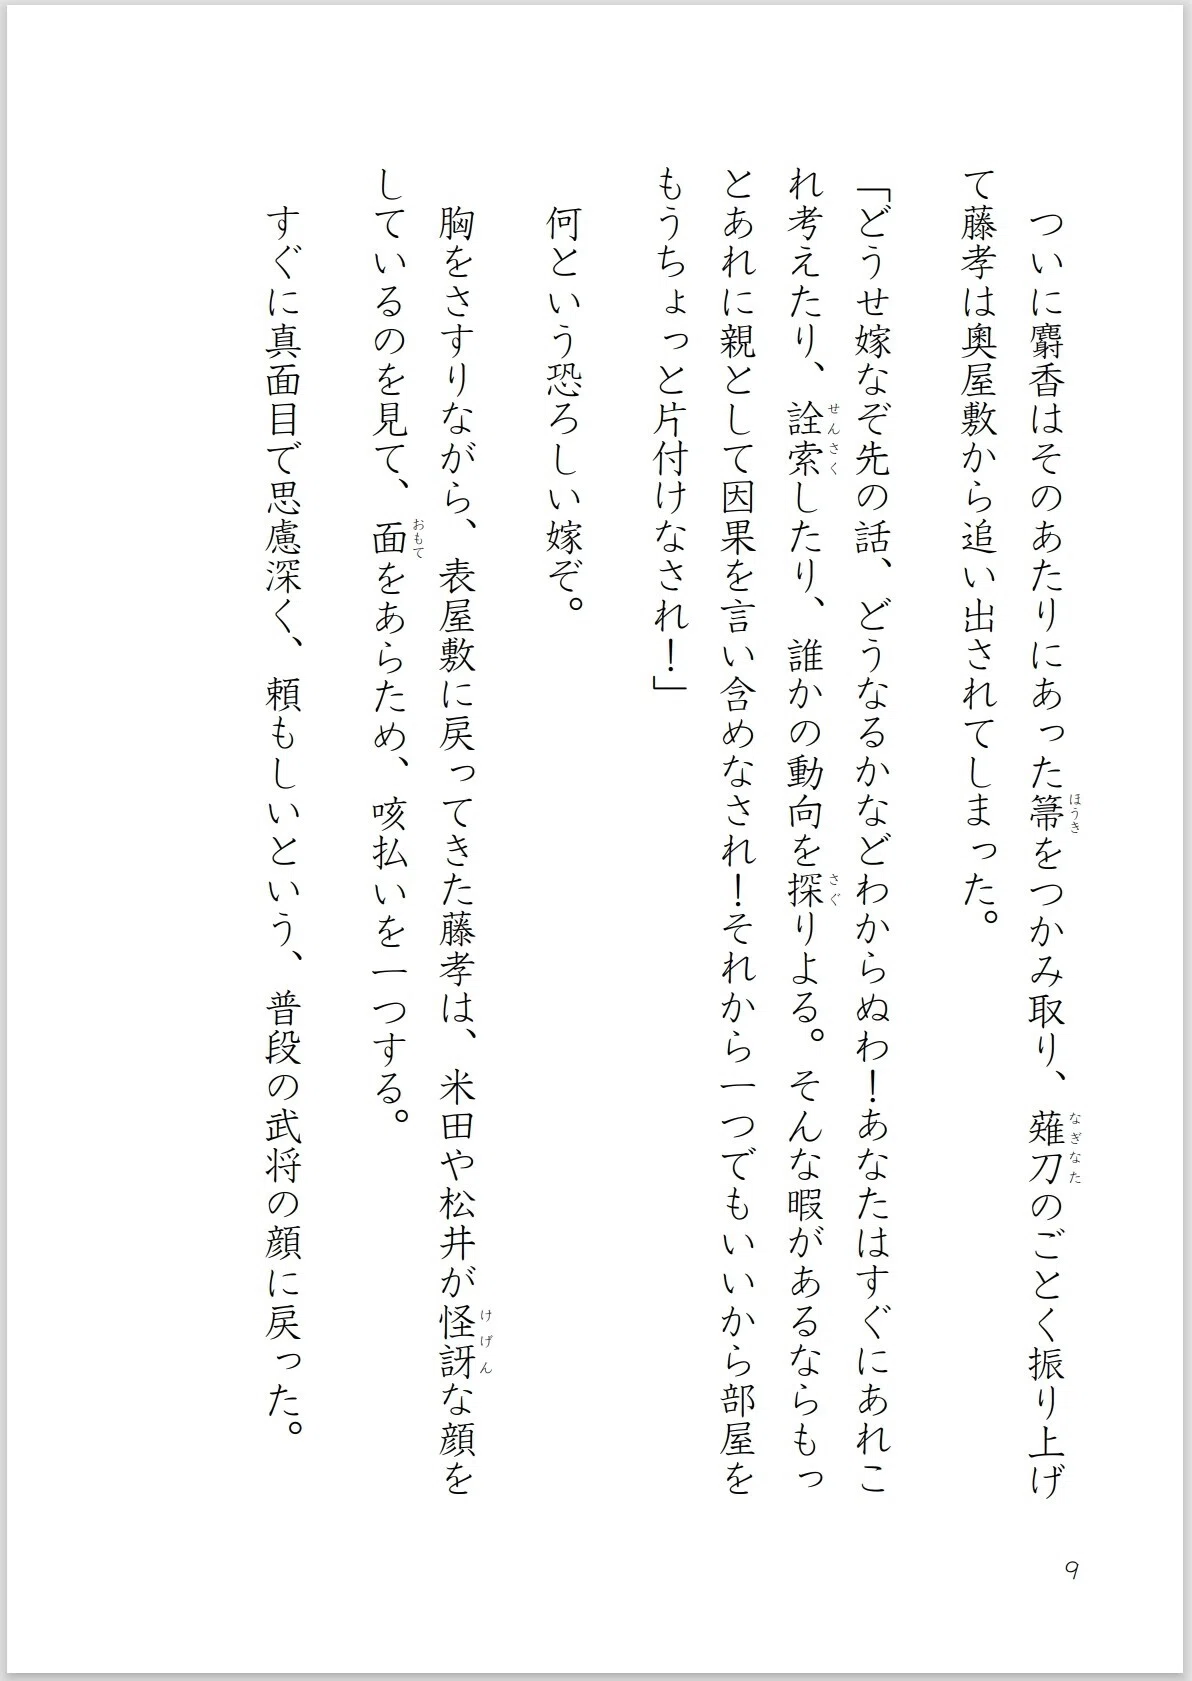 ついに麝香はそのあたりにあった箒をつかみ取り、薙刀のごとく振り上げ
て藤孝は奥屋敷から追い出されてしまった。
「どうせ嫁なぞ先の話、どうなるかなどわからぬわ！あなたはすぐにあれこ
れ考えたり、詮索したり、誰かの動向を探りよる。そんな暇があるならもっ
とあれに親として因果を言い含めなされ！それから一つでもいいから部屋を
もうちょっと片付けなされ！」
何という恐ろしい嫁ぞ。
胸をさすりながら、表屋敷に戻ってきた藤孝は、米田や松井が怪訝な顔を
しているのを見て、面をあらため、咳払いを一つする。
すぐに真面目で思慮深く、頼もしいという、普段の武将の顔に戻った。
ほうき
なぎなた
せんさく
さぐ
けげん
おもて
9